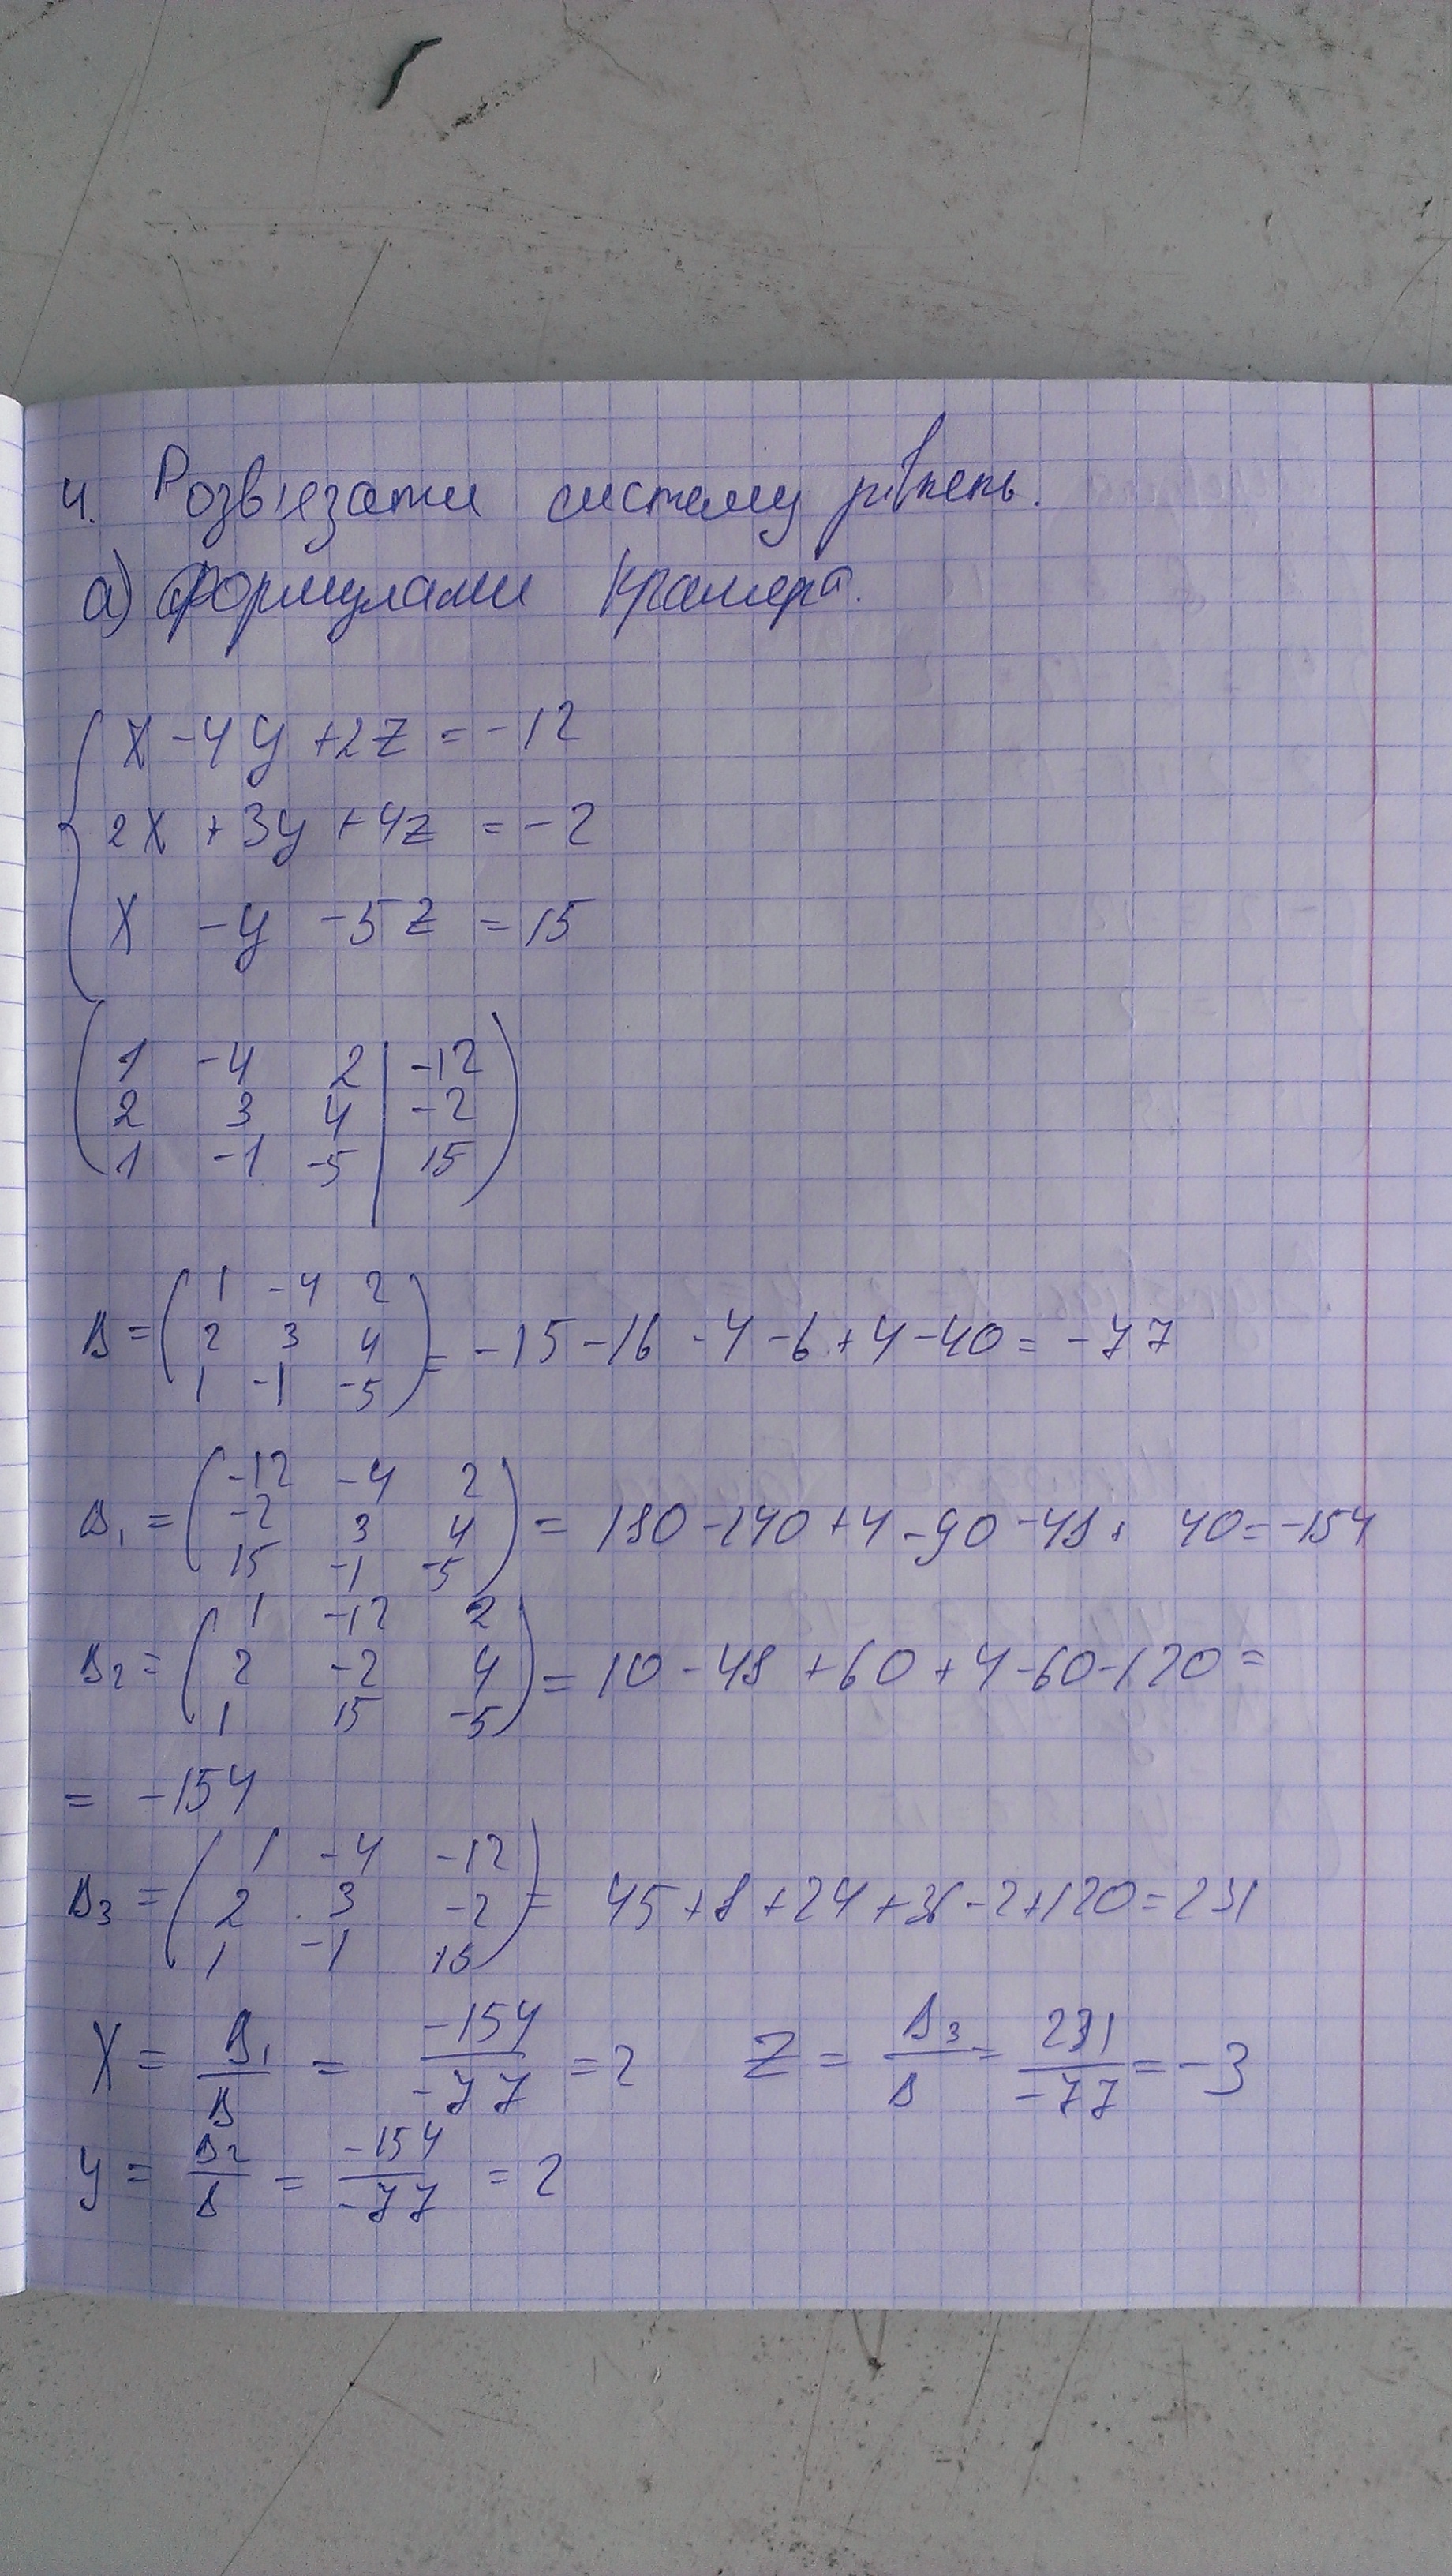 4. Розв'язати систему рівнень.
а) формулами Крамера.
x - 4y + 2z = -12
2x + 3y + 4z = -2
x - y - 5z = 15
1 -4 2 | -12
2 3 4 | -2
1 -1 -5 | 15
1 -4 2
Δ = 2 3 4 = -15 - 16 - 4 - 6 + 4 - 40 = -77
1 -1 -5
-12 -4 2
Δ1 = -2 3 4 = 180 - 240 + 4 - 90 - 48 + 40 = -154
15 -1 -5
1 -12 2
Δ2 = 2 -2 4 = 10 - 48 + 60 + 4 - 60 - 120 =
1 15 -5
= -154
1 -4 -12
Δ3 = 2 3 -2 = 45 + 8 + 24 + 36 - 2 + 120 = 231
1 -1 15
X = Δ1/Δ = -154/-77 = 2 Z = Δ3/Δ = 231/-77 = -3
y = Δ2/Δ = -154/-77 = 2